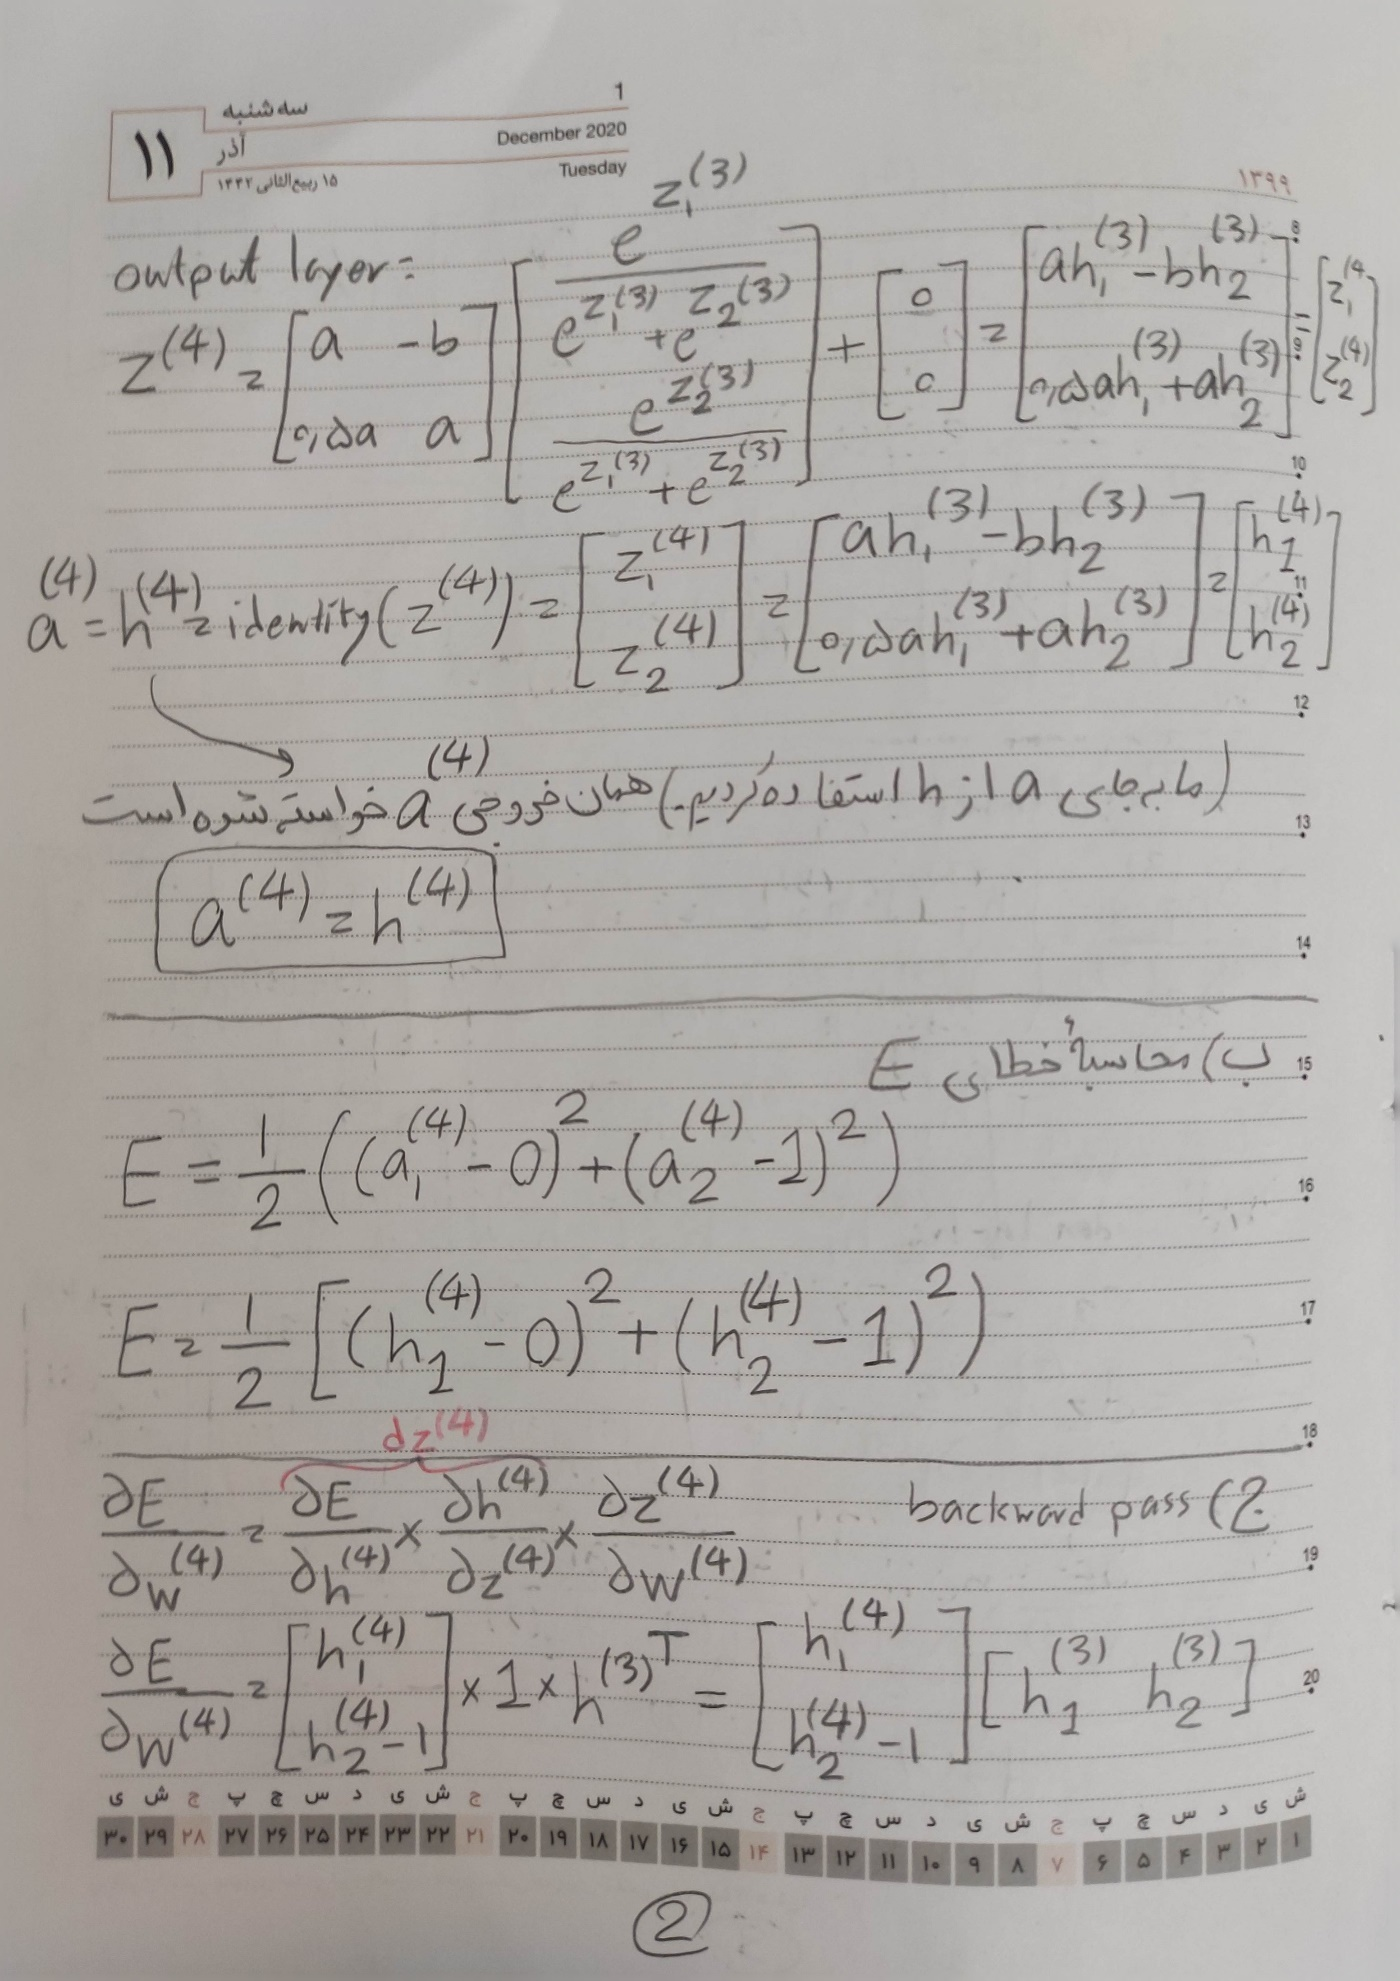 ۱۱
سه شنبه
آذر
۱۵ ربیع‌الثانی ۱۴۴۲
1
December 2020
Tuesday
۱۳۹۹
output layer:
z^(4) = [a -b; ۰,۵a a] [e^{z₁^(3)} / (e^{z₁^(3)} + e^{z₂^(3)}); e^{z₂^(3)} / (e^{z₁^(3)} + e^{z₂^(3)})] + [0; 0] = [ah₁^(3) - bh₂^(3); ۰,۵ah₁^(3) + ah₂^(3)] = [z₁^(4); z₂^(4)]
a^(4) = h^(4) = identity(z^(4)) = [z₁^(4); z₂^(4)] = [ah₁^(3) - bh₂^(3); ۰,۵ah₁^(3) + ah₂^(3)] = [h₁^(4); h₂^(4)]
(ما به جای a از h استفاده کردیم.) همان خروجی a^(4) خواسته شده است
a^(4) = h^(4)
ب) محاسبهٔ خطای E
E = 1/2 ((a₁^(4) - 0)² + (a₂^(4) - 1)²)
E = 1/2 [(h₁^(4) - 0)² + (h₂^(4) - 1)²)
dz^(4)
ج) backward pass
∂E/∂w^(4) = ∂E/∂h^(4) × ∂h^(4)/∂z^(4) × ∂z^(4)/∂w^(4)
∂E/∂w^(4) = [h₁^(4); h₂^(4) - 1] × 1 × h^(3)^T = [h₁^(4); h₂^(4) - 1] [h₁^(3) h₂^(3)]
8
9
10
11
12
13
14
15
16
17
18
19
20
ش ی د س چ پ ج ش ی د س چ پ ج ش ی د س چ پ ج ش ی د س چ پ ج ش ی
۱ ۲ ۳ ۴ ۵ ۶ ۷ ۸ ۹ ۱۰ ۱۱ ۱۲ ۱۳ ۱۴ ۱۵ ۱۶ ۱۷ ۱۸ ۱۹ ۲۰ ۲۱ ۲۲ ۲۳ ۲۴ ۲۵ ۲۶ ۲۷ ۲۸ ۲۹ ۳۰
2